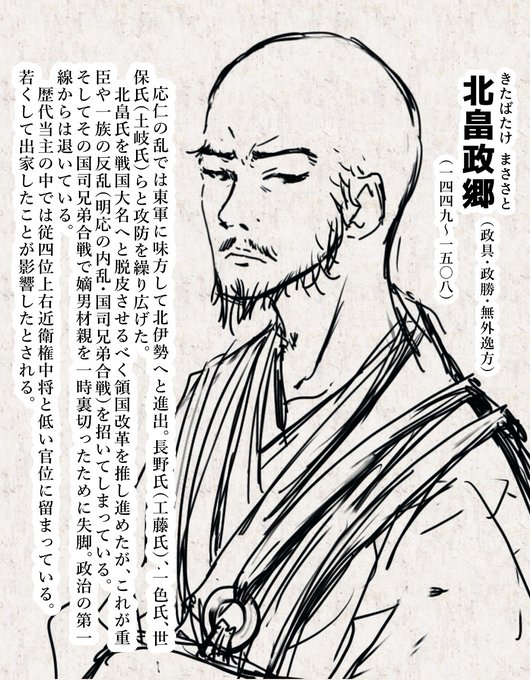 きたばたけ まささと
北畠政郷
（政具・政勝・無外逸方）
（一四四九～一五〇八）
応仁の乱では東軍に味方して北伊勢へと進出。長野氏（工藤氏）、一色氏、世
保氏（土岐氏）らと攻防を繰り広げた。
北畠氏を戦国大名へと脱皮させるべく領国改革を推し進めたが、これが重
臣や一族の反乱（明応の内乱・国司兄弟合戦）を招いてしまっている。
そしてその国司兄弟合戦で嫡男材親を一時裏切ったために失脚。政治の第一
線からは退いている。
歴代当主の中では従四位上右近衛権中将と低い官位に留まっている。
若くして出家したことが影響したとされる。